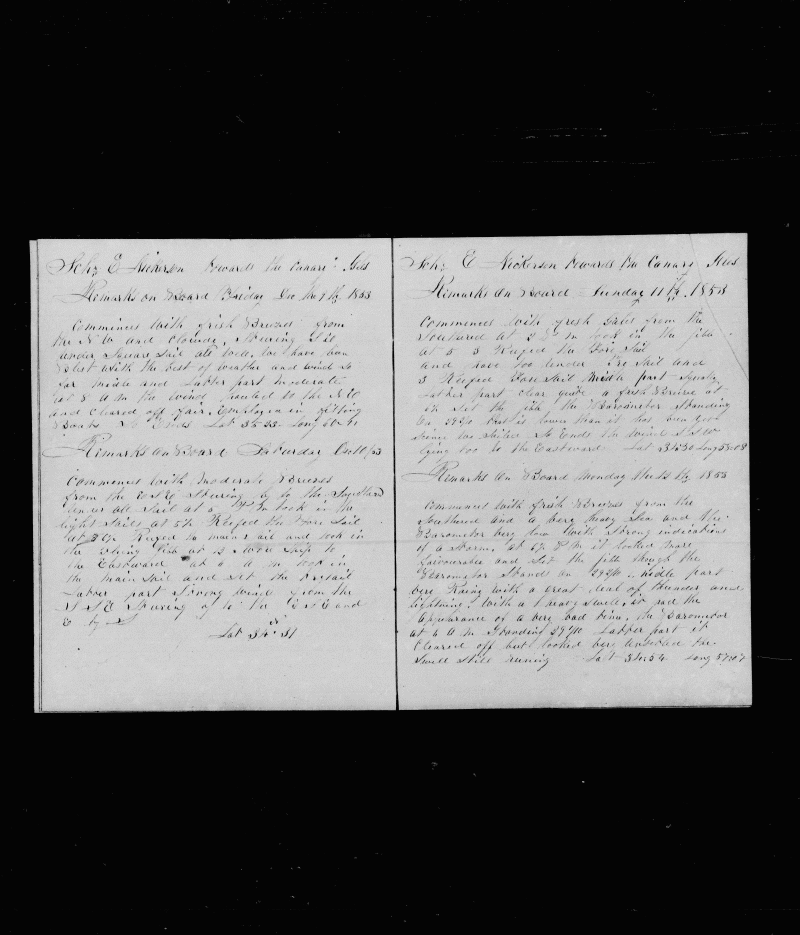 Schr E Nickerson towards the Canary Iles
Remarks on Board Friday Dec the 9 th 1853
Commences with fresh Breezes from
the N W and cloudy Stearing
under Square Sail all well, we have been
blest with the best of weather and wind so
far midle and Latter part moderate
at 8 A m the wind hauled to the N E
and cleared off fair, Employed in fitting
Boats So Ends Lat 35.33 Long
Remarks on Board Saturday Dec 10 /53
Commences with moderate Breezes
from the E N E Stearing by to the Southard
under all Sail at 5 P m took in the
light Sails at 5½ Reefed the Fore Sail
at Reefed the main Sail and took in
the flying Gib at 12 Wore Ship to
the Eastward at 6 A m took in
the main Sail and Set the trysail
Latter part Strong wind from the
S S E Stearing of to the E S E and
E by S
Lat 34° 31
Schr E Nickerson towards the Canary Iles
Remarks on Board Sunday 11 th 1853
Commences with fresh Gales from the
Southerd at 2 P m took in the jibb
at 5 3 Reefed the Fore Sail
and have too under Sail and
3 Reefed Fore Sail Middle part Squaly
Latter part clear quite a fresh Breeze at
Set the jib the Barometer Standing
On 29 that is lower than it has been
Since we Sailed So Ends the wind S S W
lying too to the Eastward Lat 34:30 Long
Remarks on Board Monday the 12 th 1853
Commences with fresh Breezes from the
Southerd and a very heavy Sea and the
Barometer very low with Strong indications
of a Storm, at P m it looked more
favourable and Set the jibb though the
Barometer Stands on 29 midle part
very Raing with a great deal of thunder and
lightning. With a heavy Swell, and
Appearance of a very bad time, the Barometer
at 4 A m Standing 29 Ladder part it
Cleared off but looked very unsettled the
Swell Still runing Lat 34:54 Long